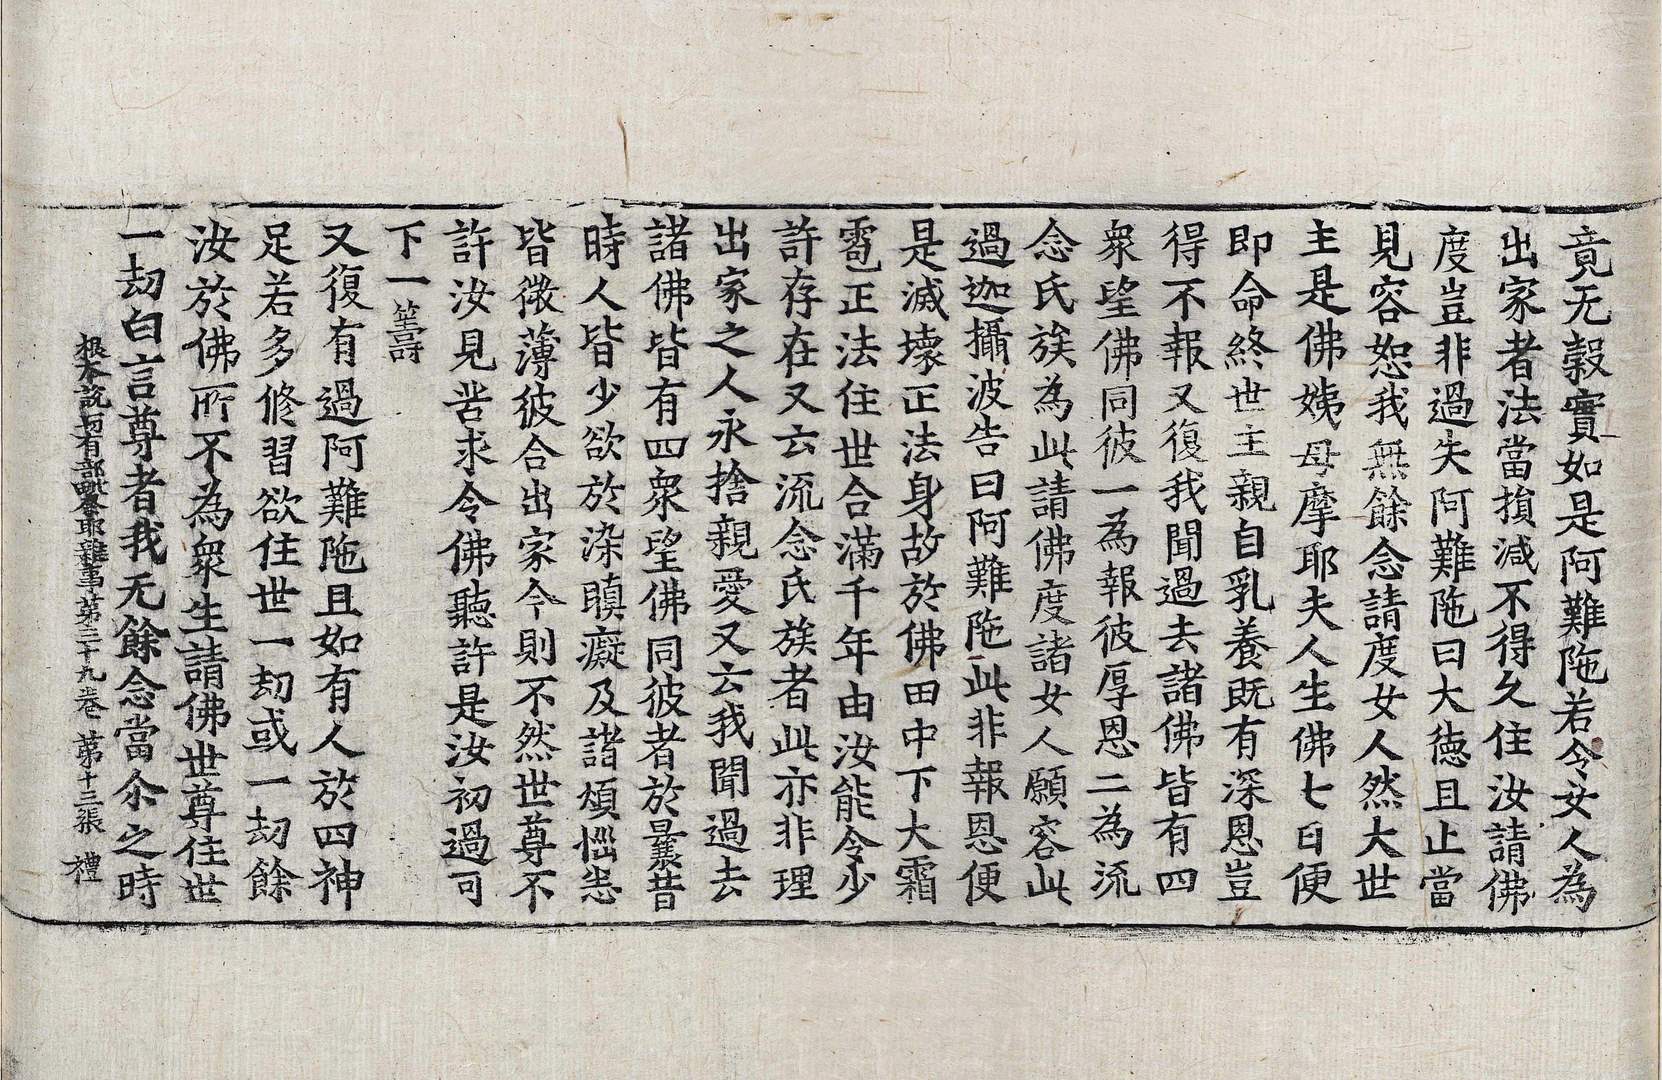 竟无穀實如是阿難陁若令女人為
出家者法當損減不得久住汝請佛
度豈非過失阿難陁曰大德且止當
見容恕我無餘念請度女人然大世
主是佛姨母摩耶夫人生佛七日便
即命終世主親自乳養既有深恩豈
得不報又復我聞過去諸佛皆有四
衆望佛同彼一為報彼厚恩二為流
念氏族為此請佛度諸女人願容此
過迦攝波告曰阿難陁此非報恩便
是滅壞正法身故於佛田中下大霜
雹正法住世合滿千年由汝能令少
許存在又云流念氏族者此亦非理
出家之人永捨親愛又云我聞過去
諸佛皆有四衆望佛同彼者於曩昔
時人皆少欲於染瞋癡及諸煩惱悉
皆微薄彼合出家今則不然世尊不
許汝見苦求令佛聽許是汝初過可
下一籌
又復有過阿難陁且如有人於四神
足若多修習欲住世一劫或一劫餘
汝於佛所不為衆生請佛世尊住世
一劫白言尊者我无餘念當尒之時
根本說一切有部毗奈耶雜事第三十九卷 第十三張 禮